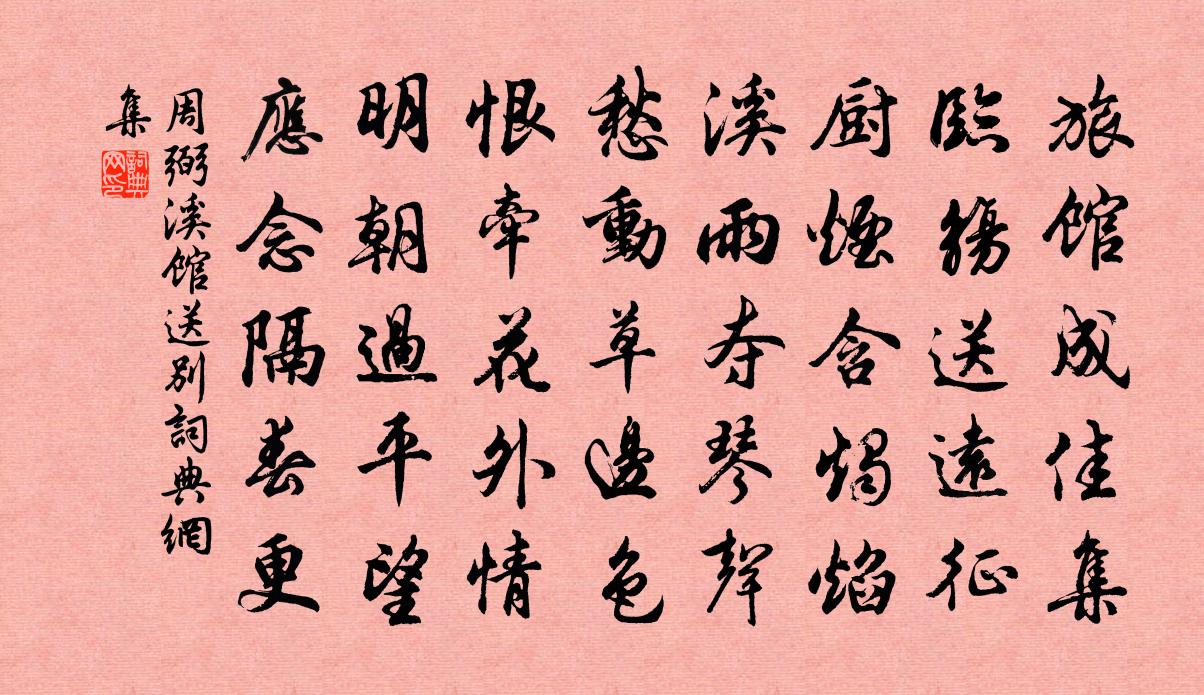 旅館成佳集
臨觴送遠征
厨煙含燭焰
溪雨夺琴聲
愁動草邊色
恨牽花外情
明朝過平望
應念隔春更
周弼溪館送別詞典網
集
詞典网印